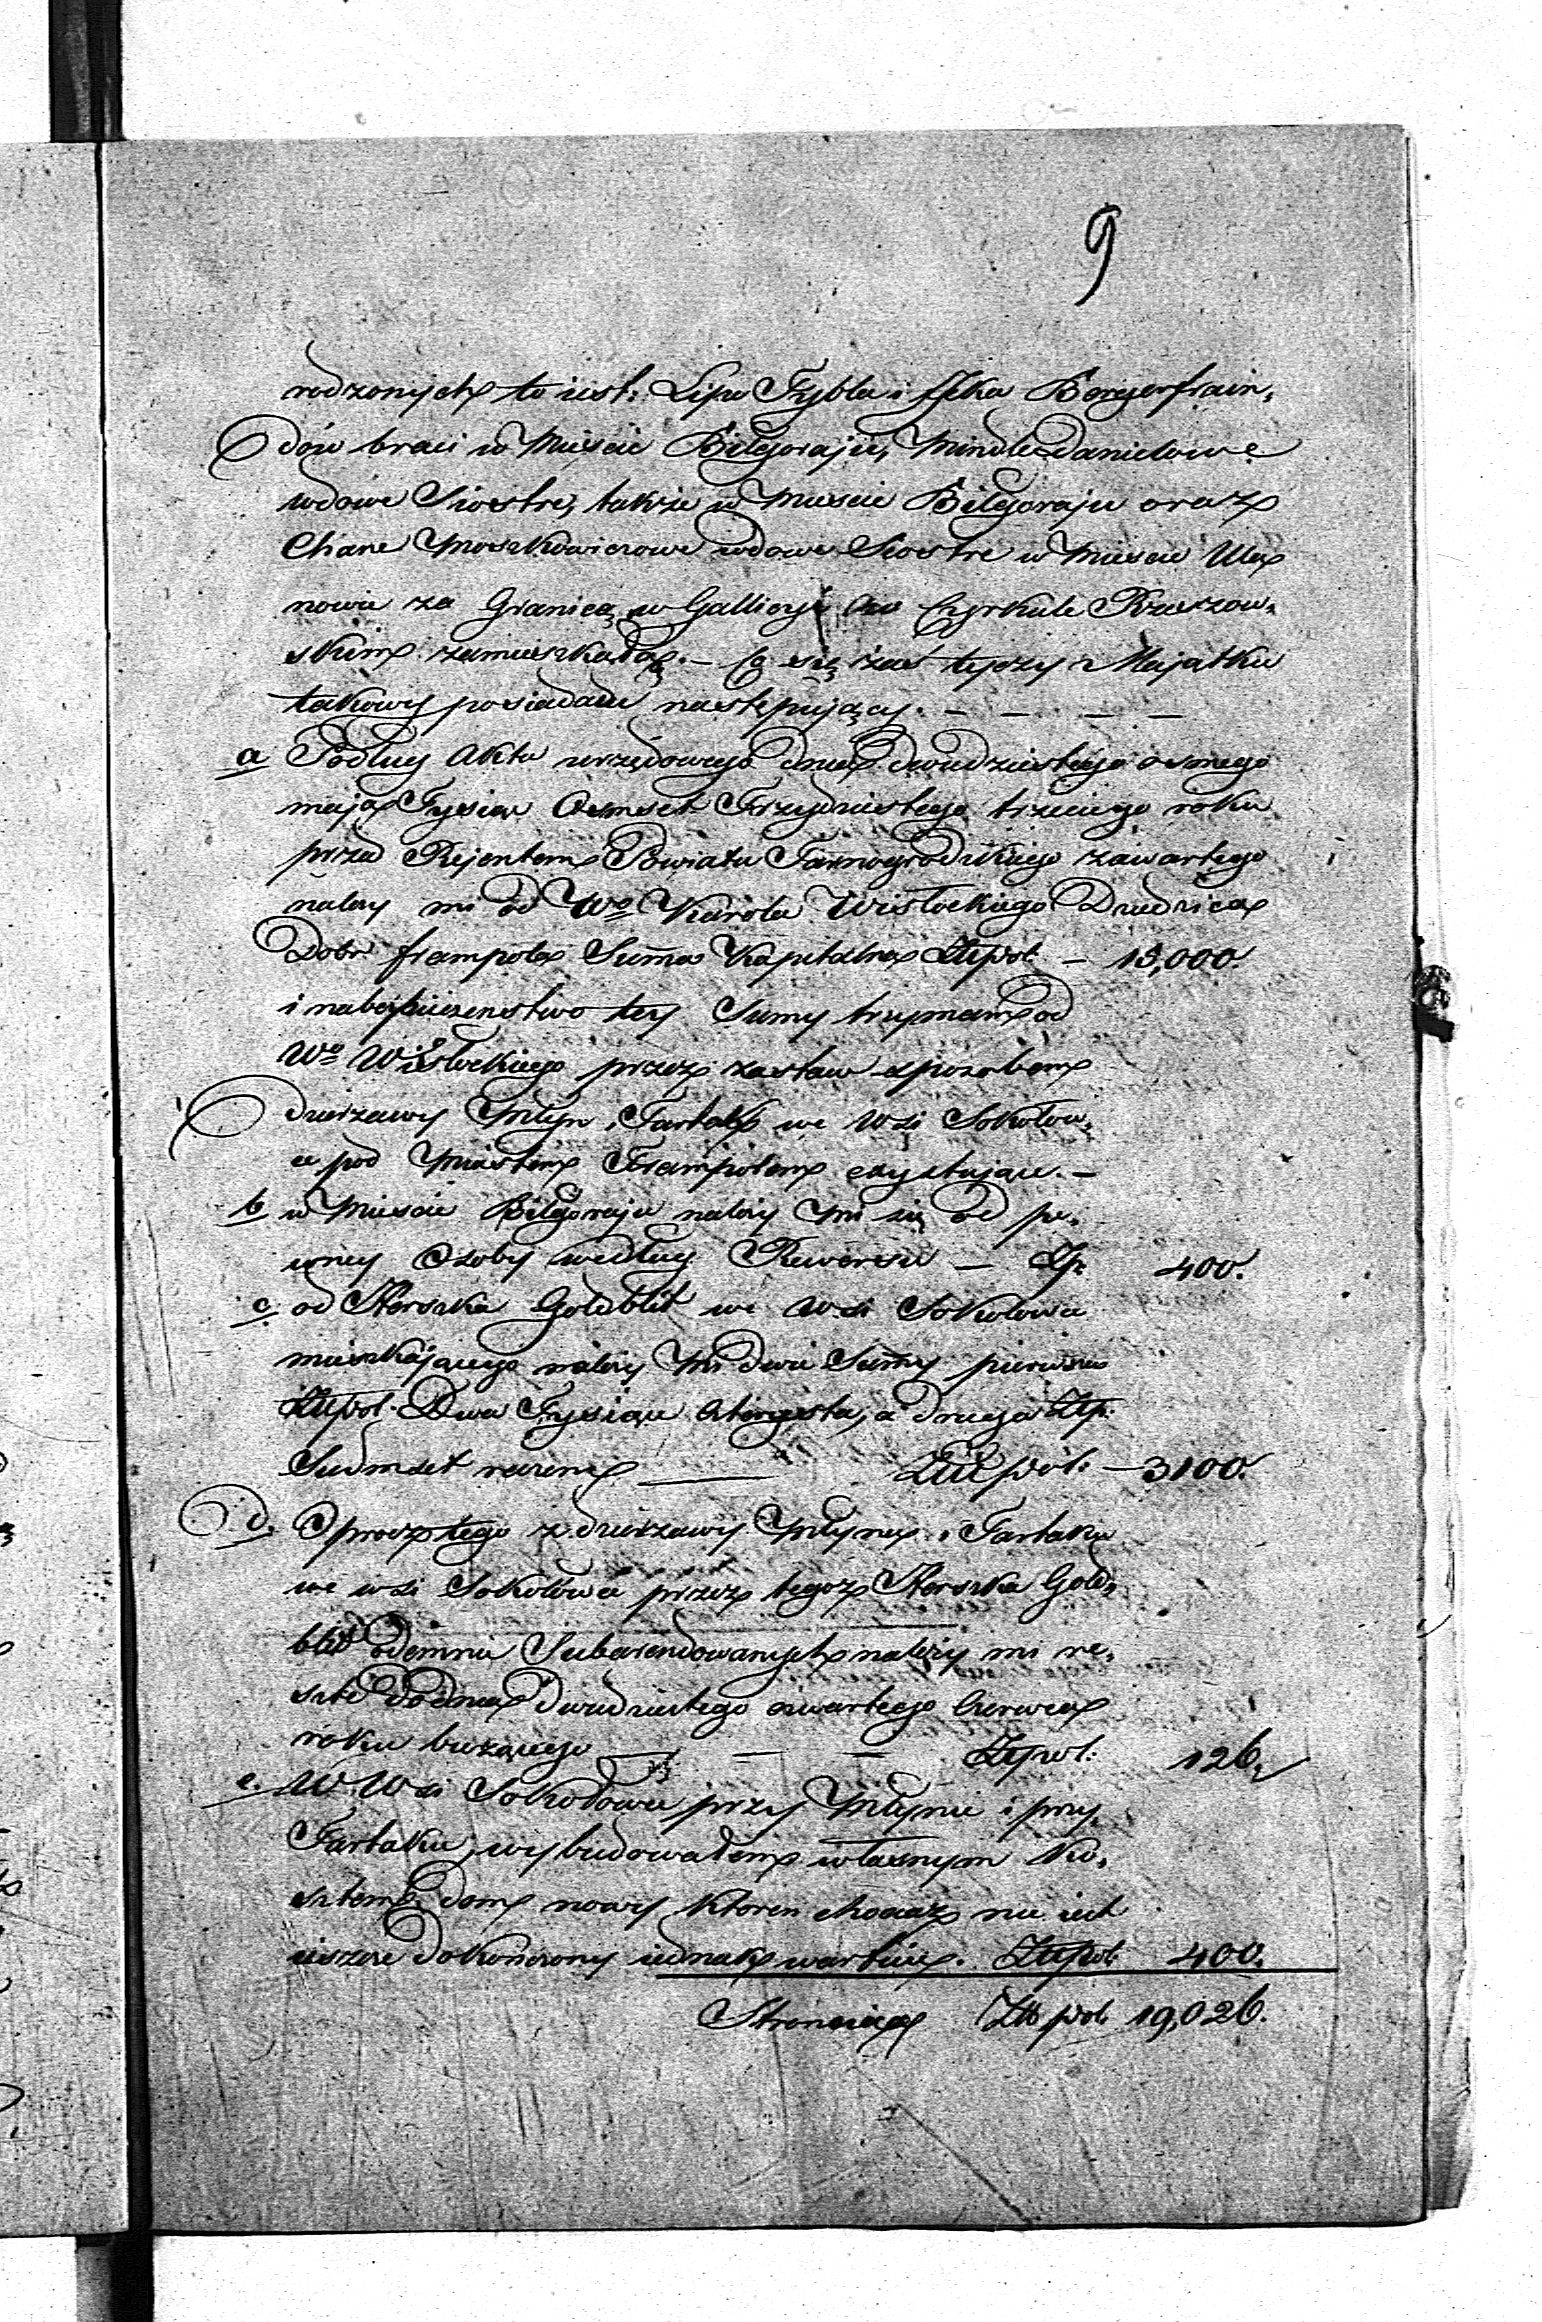 9
rodzonych to iest: Lipa Fybla i Icka Bergerfrain,
dów braci w Mieście Biłgoraju, Mindle Danielowę
wdowe Siostrę, także w Mieście Biłgoraju oraz
Chane Moszkowiczowe wdowe Siostre w Mieście Ula
nowie za Granicą w Gallicyi w Cyrkule Rzeszow,
skim zamieszkałą. — Co się zaś tyczy Majątku
takowy posiadam następujący. — — — —
a Podług Aktu urzędowego dnia dwudziestego osmego
maja Tysiąc Osmset Trzydziestego trzeciego roku
przed Rejentem Powiatu Tarnogrodzkiego zawartego
należy mi od Wo Karola Wisłockiego Dziedzica
Dobr frampola Summa Kapitalna Złtpol. — 15,000.
i na bezpieczenstwo tey Sumy trzymam od
Wo Wisłockiego przez zastaw sposobem
dzierzawy Młyn i Tartak we Wsi Sokołow,
ce pod Miastem Frampolem exystujące. —
b w Mieście Biłgoraju należy mi się od pe,
wney Osoby według Rewersu — Zp. 400.
c od Herszka Goldblit we Wsi Sokołowce
mieszkającego należy mi dwie Summy pierwsza
Złtpol. Dwa Tysiące Czterysta, a druga Złtp.
Siedmset razem — Złtpol. — 3100.
d. Oprocz tego z dzierzawy Młyna i Tartaku
we wsi Sokołowce przez tegoz Herszka Gold,
blit odemnie Subarendowanych należy mi re,
szta do dnia dwudziestego czwartego Czerwca
roku bieżącego — — — Złtpol: 126,
e. W Wsi Sokołowce przy Młynie i przy
Tartaku, wybudowałem własnym Ko,
sztem dom nowy ktoren chociaz nie iest
ieszcze dokończony iednak wartuie. Złtpol 400.
Stronnica Złt pol 19,026.